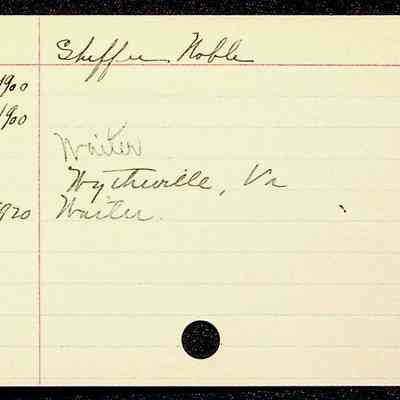 Sheffer Noble
1900
1900
Waiter
Wytheville, Va
1920 Waiter